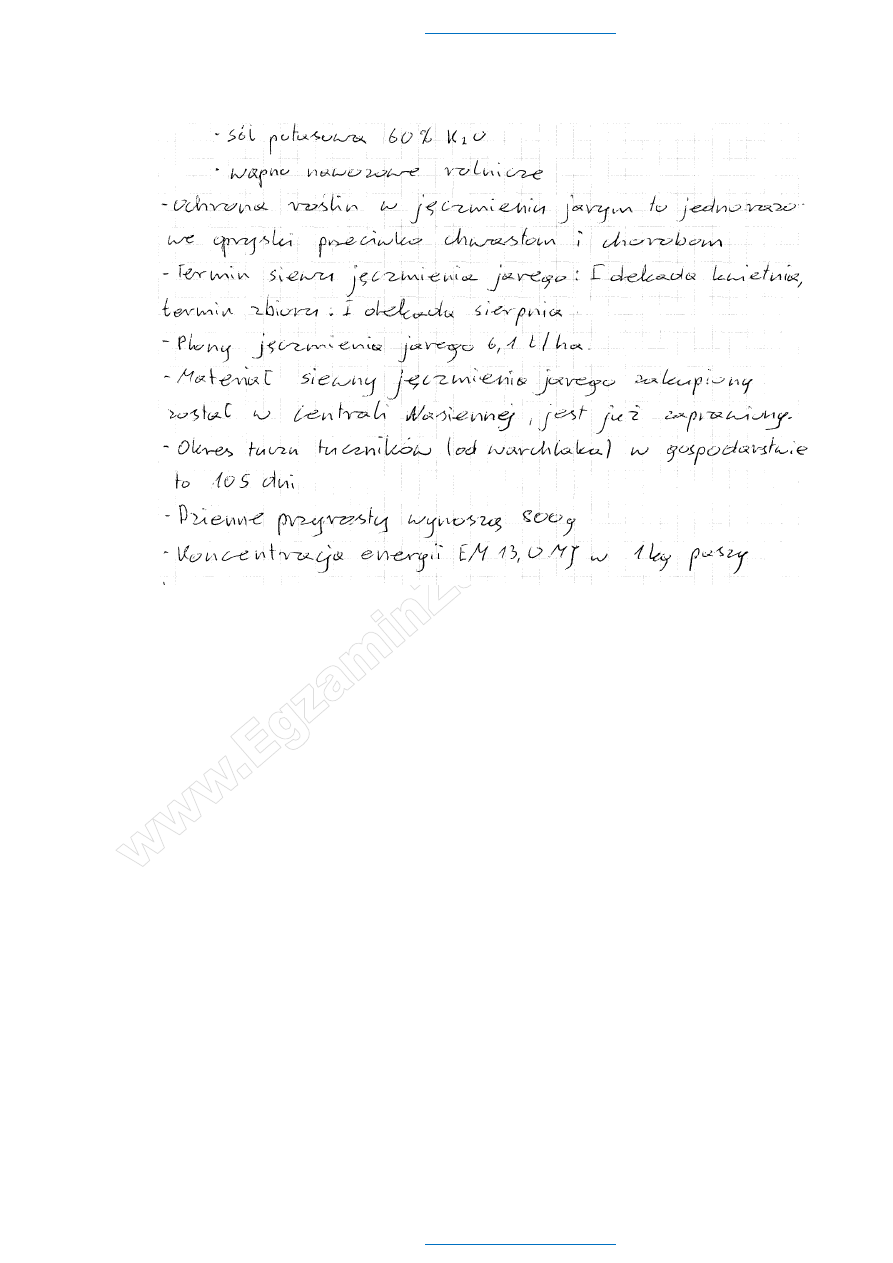 · sól potasowa 60% K₂O
· wapno nawozowe rolnicze
- Ochrona roślin w jęczmieniu jarym to jednorazo-
we opryski przeciwko chwastom i chorobom
- Termin siewu jęczmienia jarego: I dekada kwietnia,
termin zbioru: I dekada sierpnia
- Plony jęczmienia jarego 6,1 t/ha.
- Materiał siewny jęczmienia jarego zakupiony
został w Centrali Nasiennej, jest już zaprawiony.
- Okres tuczu tuczników (od warchlaka) w gospodarstwie
to 105 dni
- Dzienne przyrosty wynoszą 800g
- Koncentracja energii EM 13,0 MJ w 1kg paszy
www.Egzamin